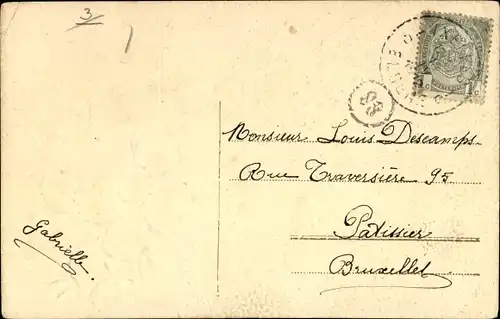 3
83
Monsieur Louis Descamps
Rue Traversière 95
Patissier
Bruxelles
Gabrielle.